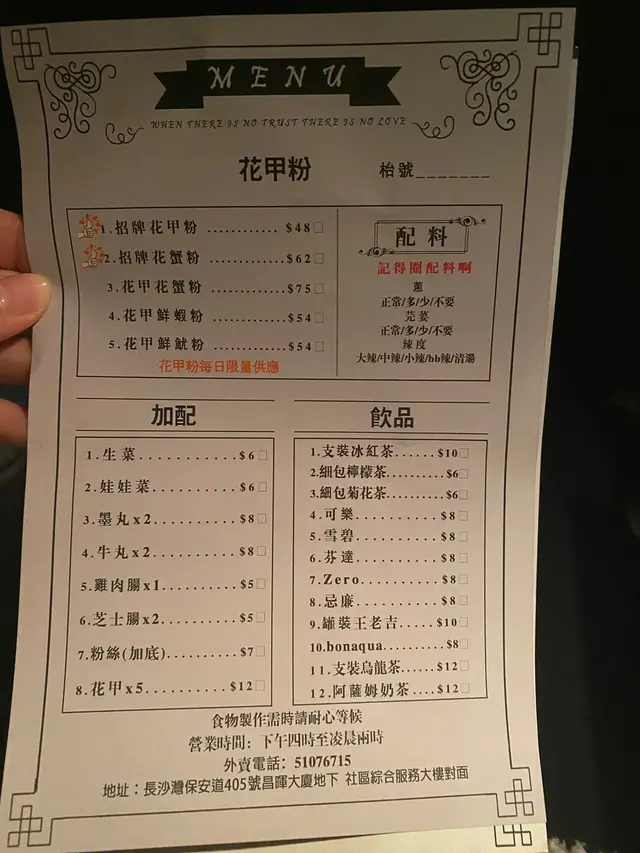 MENU
WHEN THERE IS NO TRUST THERE IS NO LOVE
花甲粉
枱號_______
1.招牌花甲粉 ............ $48□
2.招牌花蟹粉 ............$62□
3.花甲花蟹粉 ............$75□
4.花甲鮮蝦粉 ............$54□
5.花甲鮮魷粉 ............$54□
花甲粉每日限量供應
配料
記得圈配料啊
蔥
正常/多/少/不要
芫荽
正常/多/少/不要
辣度
大辣/中辣/小辣/bb辣/清湯
加配
1.生菜...........$6□
2.娃娃菜.........$6□
3.墨丸x2.........$8□
4.牛丸x2.........$8□
5.雞肉腸x1........$5□
6.芝士腸x2........$5□
7.粉絲(加底)........$7□
8.花甲x5.........$12□
飲品
1.支裝冰紅茶......$10□
2.細包檸檬茶.........$6□
3.細包菊花茶.........$6□
4.可樂..........$8□
5.雪碧..........$8□
6.芬達..........$8□
7.Zero..........$8□
8.忌廉..........$8□
9.罐裝王老吉.....$10□
10.bonaqua.........$8□
11.支裝烏龍茶....$12□
12.阿薩姆奶茶....$12□
食物製作需時請耐心等候
營業時間：下午四時至凌晨兩時
外賣電話：51076715
地址：長沙灣保安道405號昌暉大廈地下 社區綜合服務大樓對面